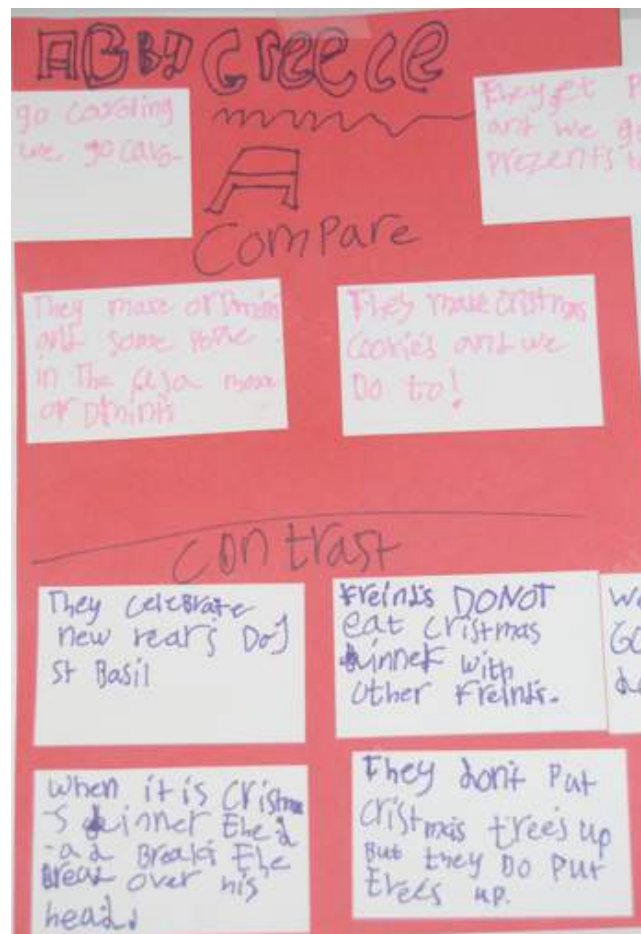 Greece
go caroling
we go caro-
They get P
and we g
prezents
A
Compare
They make
and some
in the make
They make cristmas
cookies and we
Do to!
contrast
They celebrate
new rears Day
St Basil
Freinds DO NOT
eat cristmas
dinner with
other Freinds.
when it is Cristma
-s dinner the d
-ad Breaks the
Bread over his
head.
They dont Put
Cristmas trees up
But they Do Put
trees up.